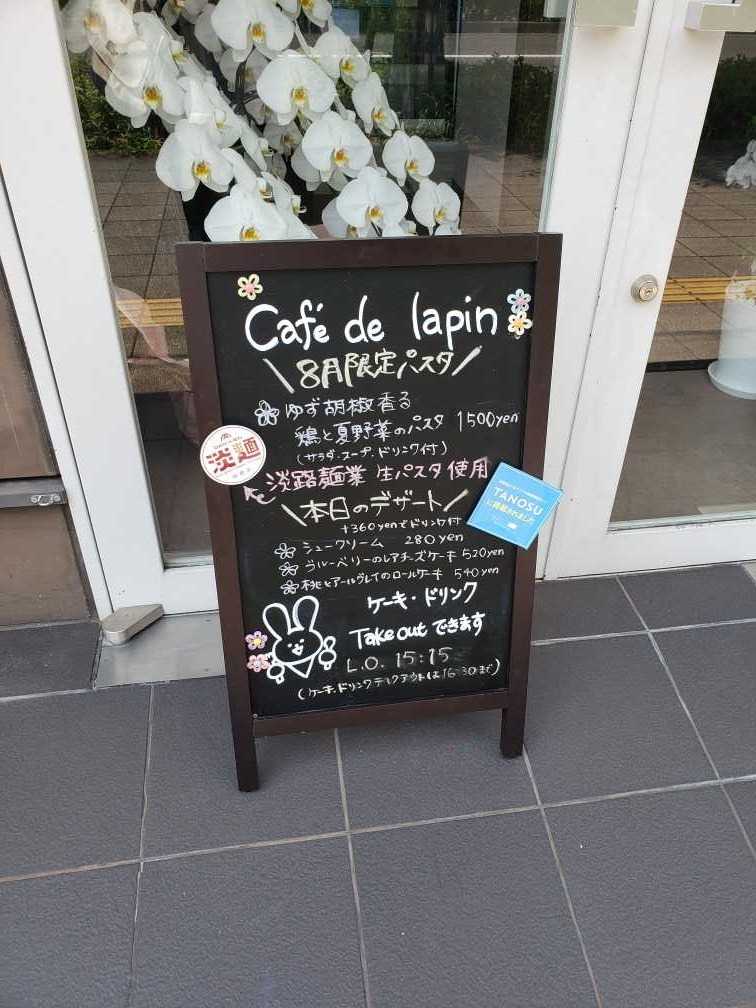 Café de lapin
\8月限定パスタ/
ゆず胡椒香る
鶏と夏野菜のパスタ 1500yen
(サラダ・スープ、ドリンク付)
淡路麺業 生パスタ使用
\本日のデザート/
+360yenでドリンク付
シュークリーム 280yen
ブルーベリーのレアチーズケーキ 520yen
桃とアールグレイのロールケーキ 540yen
ケーキ・ドリンク
Take out できます
L.O. 15:15
(ケーキ、ドリンク テイクアウトは16:30まで)
淡麺
TANOSU
に掲載されました